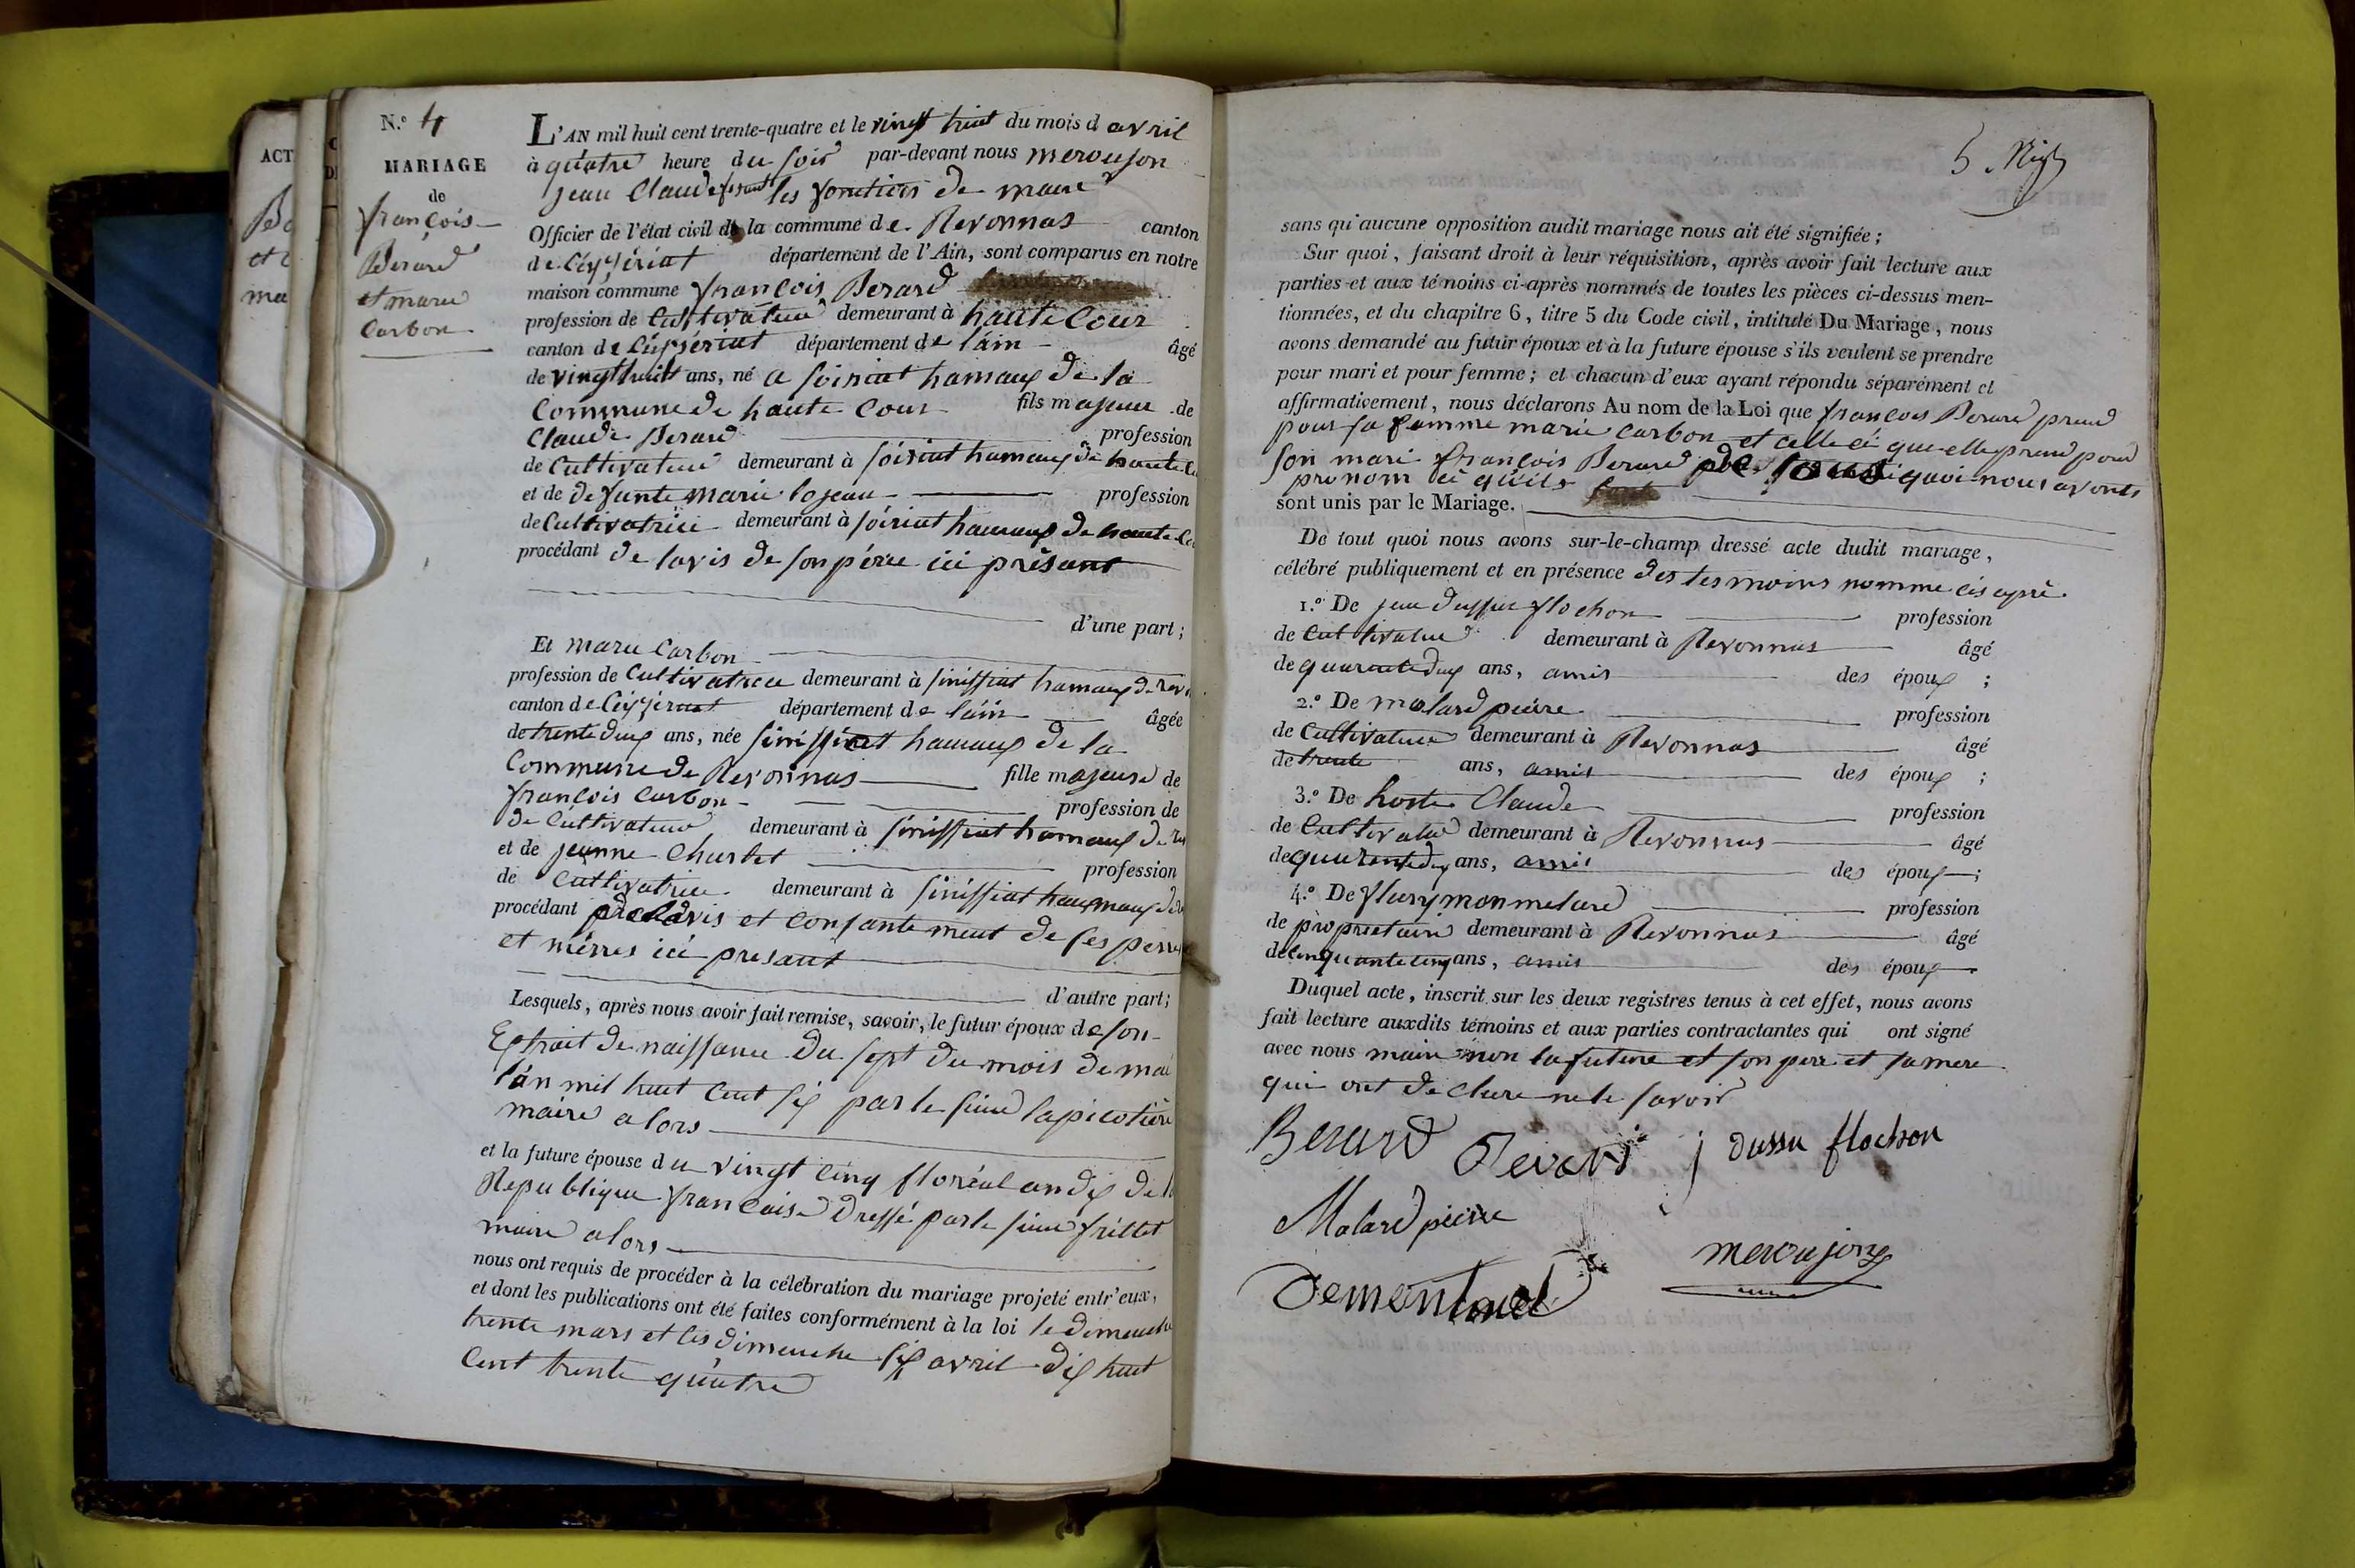 ACT
Be
et c
ma
N.º 4
MARIAGE
de
françois
Berard
et marie
Carbon
L'AN mil huit cent trente-quatre et le vingt huit du mois d avril
à quatre heure du soir par-devant nous meroujon
jean Claude fesant les fonctions de maire
Officier de l'état civil de la commune de Revonnas canton
de Ceyzeriat département de l'Ain, sont comparus en notre
maison commune françois Berard
profession de Cultivateur demeurant à haute Cour
canton de Ceyzeriat département de l'ain âgé
de vingt huit ans, né a soiriat hamaux de la
Commune de haute Cour fils majeur de
Claude Berard profession
de Cultivateur demeurant à soiriat hamaux de haute Co
et de defunte marie lojeau profession
de Cultivatrice demeurant à soiriat hamaux de haute Co
procédant de lavis de son pére ici présant
d'une part;
Et marie Carbon
profession de Cultivatrice demeurant à sinissiat hamaux de rev
canton de Ceyzeriat département de l'ain âgée
de trente deux ans, née sinissiat hamaux de la
Commune de Revonnas fille majeure de
françois Carbon profession de
de Cultivateur demeurant à sinissiat hamaux de re
et de jeanne Charlet profession
de Cultivatrice demeurant à sinissiat haumaux de
procédant de lavis et consantement de ses perre
et mérres ici presant
d'autre part;
Lesquels, après nous avoir fait remise, savoir, le futur époux de son
Extrait de naissance du sept du mois de mai
l'an mil huit Cent six par le sieur lapicotiere
maire alors
et la future épouse du vingt cinq floréal an dix de la
Republique francaise dressé par le sieur frillet
maire alors
nous ont requis de procéder à la célébration du mariage projeté entr'eux,
et dont les publications ont été faites conformément à la loi le dimenche
trente mars et les dimenche six avril dix huit
Cent trente quatre
5.
sans qu'aucune opposition audit mariage nous ait été signifiée;
Sur quoi, faisant droit à leur réquisition, après avoir fait lecture aux
parties et aux témoins ci-après nommés de toutes les pièces ci-dessus men-
tionnées, et du chapitre 6, titre 5 du Code civil, intitulé Du Mariage, nous
avons demandé au futur époux et à la future épouse s'ils veulent se prendre
pour mari et pour femme; et chacun d'eux ayant répondu séparément et
affirmativement, nous déclarons Au nom de la Loi que francois Berard prend
pour sa femme marie Carbon et celle ci que elle prend pour
son mari françois Berard quoi nous avons
prononcé qu'ils
sont unis par le Mariage.
De tout quoi nous avons sur-le-champ dressé acte dudit mariage,
célébré publiquement et en présence des tesmoins nomme cis apré.
1.º De jean dussur flochon profession
de Cultivateur demeurant à Revonnas âgé
de quarante deux ans, amis des époux ;
2.º De malard piérre profession
de Cultivateur demeurant à Revonnas âgé
de trente ans, amis des époux ;
3.º De hoste Claude profession
de Cultivateur demeurant à Revonnas âgé
de quarente deux ans, amis des époux ;
4.º De flury monmelard profession
de propriétaire demeurant à Revonnas âgé
de cinquante cinq ans, amis des époux
Duquel acte, inscrit sur les deux registres tenus à cet effet, nous avons
fait lecture auxdits témoins et aux parties contractantes qui ont signé
avec nous maire non la future et son pere et sa mere
qui ont de clure ne le savoir
Berard Berard j dussu flochon
Malard pierre
meroujon